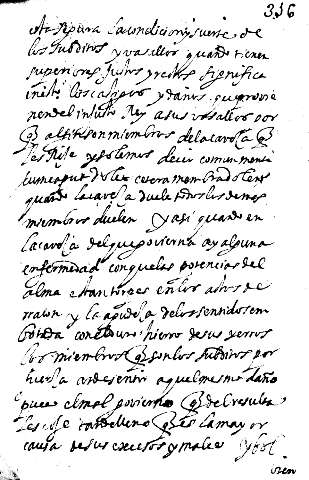 316
la condicion y suerte de
los subditos y vasallos quando tienen
superiores justos y rectos significa
los castigos y daños que provie
nen del injusto Rey a sus vasallos por
q̃ al fin son miembros de la cavesa q̃
les Rije y solemos decir comunmente
cum caput dolet cetera membra dolent
quando la cavesa duele todos los demas
miembros duelen y asi quando en
la cavesa del que govierna ay alguna
enfermedad con que las potencias del
alma estan torpes en los actos de
rason y la agudesa de los sentidos em
botada con el duro hierro de sus yerros
los miembros q̃ son los subditos por
fuersa an de sentir aquel mesmo daño
pues el mal govierno q̃ del resulta
les coje de lleno q̃ es la mayor
causa de sus excesos y males